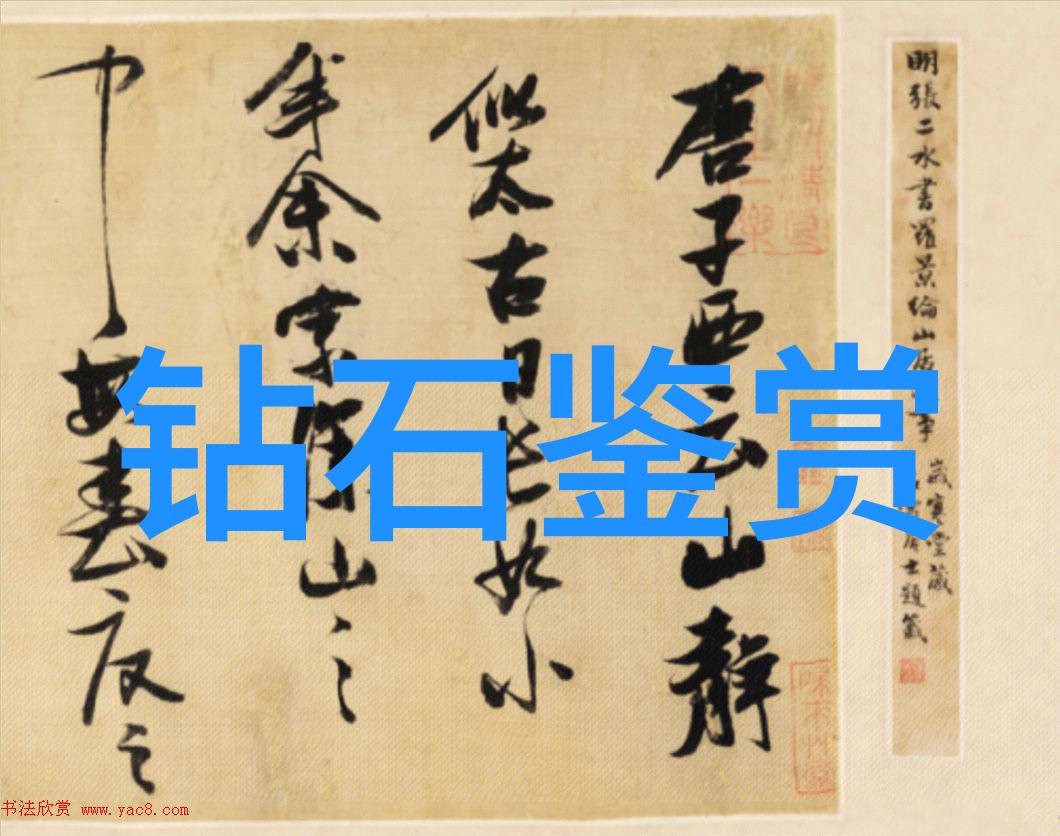 明張二水書羅景綸山居
歲寒堂藏
居士題籤
唐子西云山靜
似太古日長如小
年余家深山之
中每春夏之
钻石鉴赏
书法欣赏 www.yac8.com